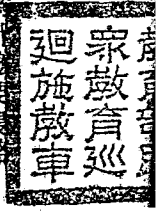 眾教育巡
迴施教車